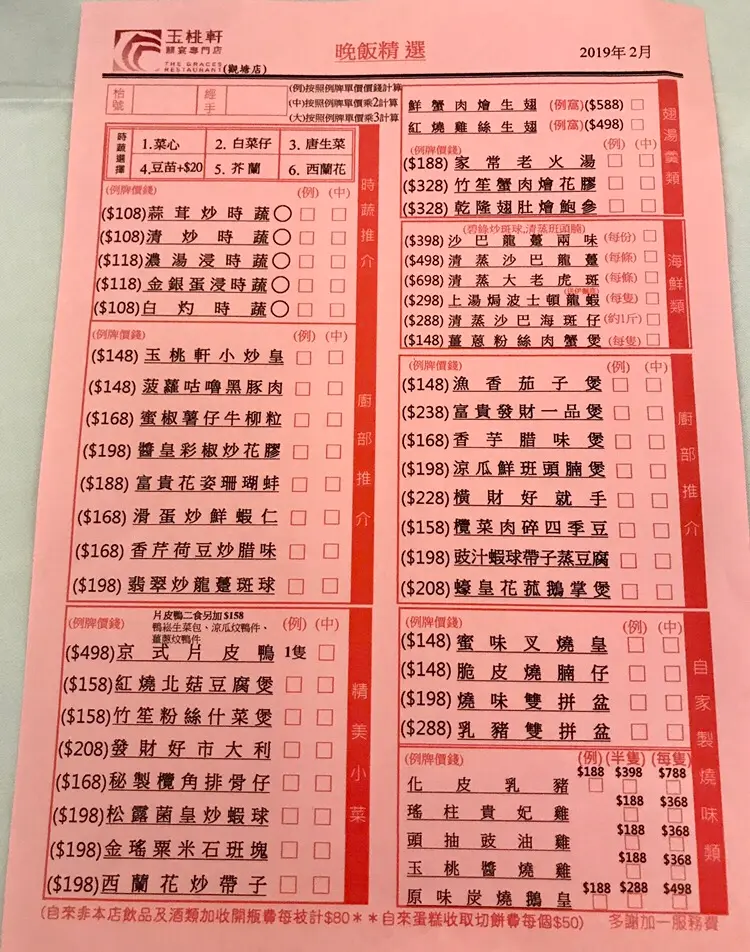 玉桃軒
囍宴專門店
THE GRACES
RESTAURANT(觀塘店)
晚飯精選
2019年2月
枱號
經手
(例)按照例牌單價價錢計算
(中)按照例牌單價乘2計算
(大)按照例牌單價乘3計算
時蔬選擇
1.菜心 2. 白菜仔 3. 唐生菜
4.豆苗+$20 5. 芥蘭 6. 西蘭花
時蔬推介
(例牌價錢) (例) (中)
($108)蒜茸炒時蔬
($108)清炒時蔬
($118)濃湯浸時蔬
($118)金銀蛋浸時蔬
($108)白灼時蔬
廚部推介
(例牌價錢) (例) (中)
($148) 玉桃軒小炒皇
($148) 菠蘿咕嚕黑豚肉
($168) 蜜椒薯仔牛柳粒
($198) 醬皇彩椒炒花膠
($188) 富貴花姿珊瑚蚌
($168) 滑蛋炒鮮蝦仁
($168) 香芹荷豆炒腊味
($198) 翡翠炒龍躉班球
精美小菜
(例牌價錢) (例) (中)
片皮鴨二食另加 $158
鴨崧生菜包、涼瓜炆鴨件、
薑蔥炆鴨件
($498)京式片皮鴨 1隻
($158)紅燒北菇豆腐煲
($158)竹笙粉絲什菜煲
($208)發財好市大利
($168)秘製欖角排骨仔
($198)松露菌皇炒蝦球
($198)金瑤粟米石班塊
($198)西蘭花炒帶子
翅湯羹類
鮮蟹肉燴生翅 (例窩)($588)
紅燒雞絲生翅 (例窩)($498)
(例牌價錢) (例) (中)
($188) 家常老火湯
($328) 竹笙蟹肉燴花膠
($328) 乾隆翅肚燴鮑參
海鮮類
(碧綠炒斑球,清蒸斑頭腩)
($398) 沙巴龍躉兩味 (每份)
($498) 清蒸沙巴龍躉 (每條)
($698) 清蒸大老虎斑 (每條)
($298) 上湯焗波士頓龍蝦 (每隻)
($288) 清蒸沙巴海斑仔 (約1斤)
($148) 薑蔥粉絲肉蟹煲 (每隻)
廚部推介
(例牌價錢) (例) (中)
($148)漁香茄子煲
($238)富貴發財一品煲
($168)香芋腊味煲
($198)涼瓜鮮班頭腩煲
($228)橫財好就手
($158)欖菜肉碎四季豆
($198)豉汁蝦球帶子蒸豆腐
($208)蠔皇花菰鵝掌煲
自家製燒味類
(例牌價錢) (例) (中)
($148) 蜜味叉燒皇
($148) 脆皮燒腩仔
($198) 燒味雙拼盆
($288) 乳豬雙拼盆
(例牌價錢) (例) (半隻) (每隻)
化皮乳豬 $188 $398 $788
瑤柱貴妃雞 $188 $368
頭抽豉油雞 $188 $368
玉桃醬燒雞 $188 $368
原味炭燒鵝皇 $188 $288 $498
(自來非本店飲品及酒類加收開瓶費每枝計$80＊＊自來蛋糕收取切餅費每個$50) 多謝加一服務費